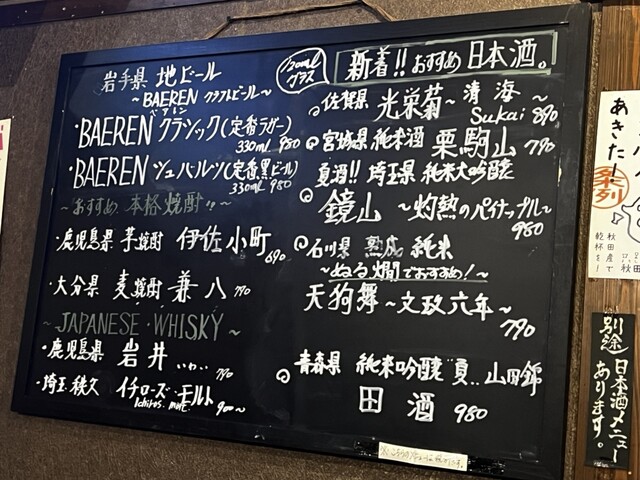 岩手県 地ビール
~BAEREN クラフトビール~
ベアレン
・BAEREN クラシック(定番ラガー)
330mL 980
・BAEREN シュバルツ(定番黒ビール)
330mL 980
~おすすめ 本格焼酎!!~
・鹿児島県 芋焼酎 伊佐小町 690
・大分県 麦焼酎 兼八 790
~JAPANESE WHISKY~
・鹿児島県 岩井 いわい 790
・埼玉 秩父 イチローズ・モルト
Ichiros. malt. 900~
120ml
グラス
新着!! おすすめ 日本酒。
佐賀県 光栄菊 ~清海~
Sukai 890
宮城県 純米酒 栗駒山 790
夏酒!! 埼玉県 純米大吟醸
鏡山 ~灼熱のパイナップル~
980
石川県 熟成 純米
~ぬる燗でおすすめ!~
天狗舞 ~文政六年~
790
青森県 純米吟醸 "夏" 山田錦
田酒 980
あきた
系列
別途 日本酒メニュー
あります。